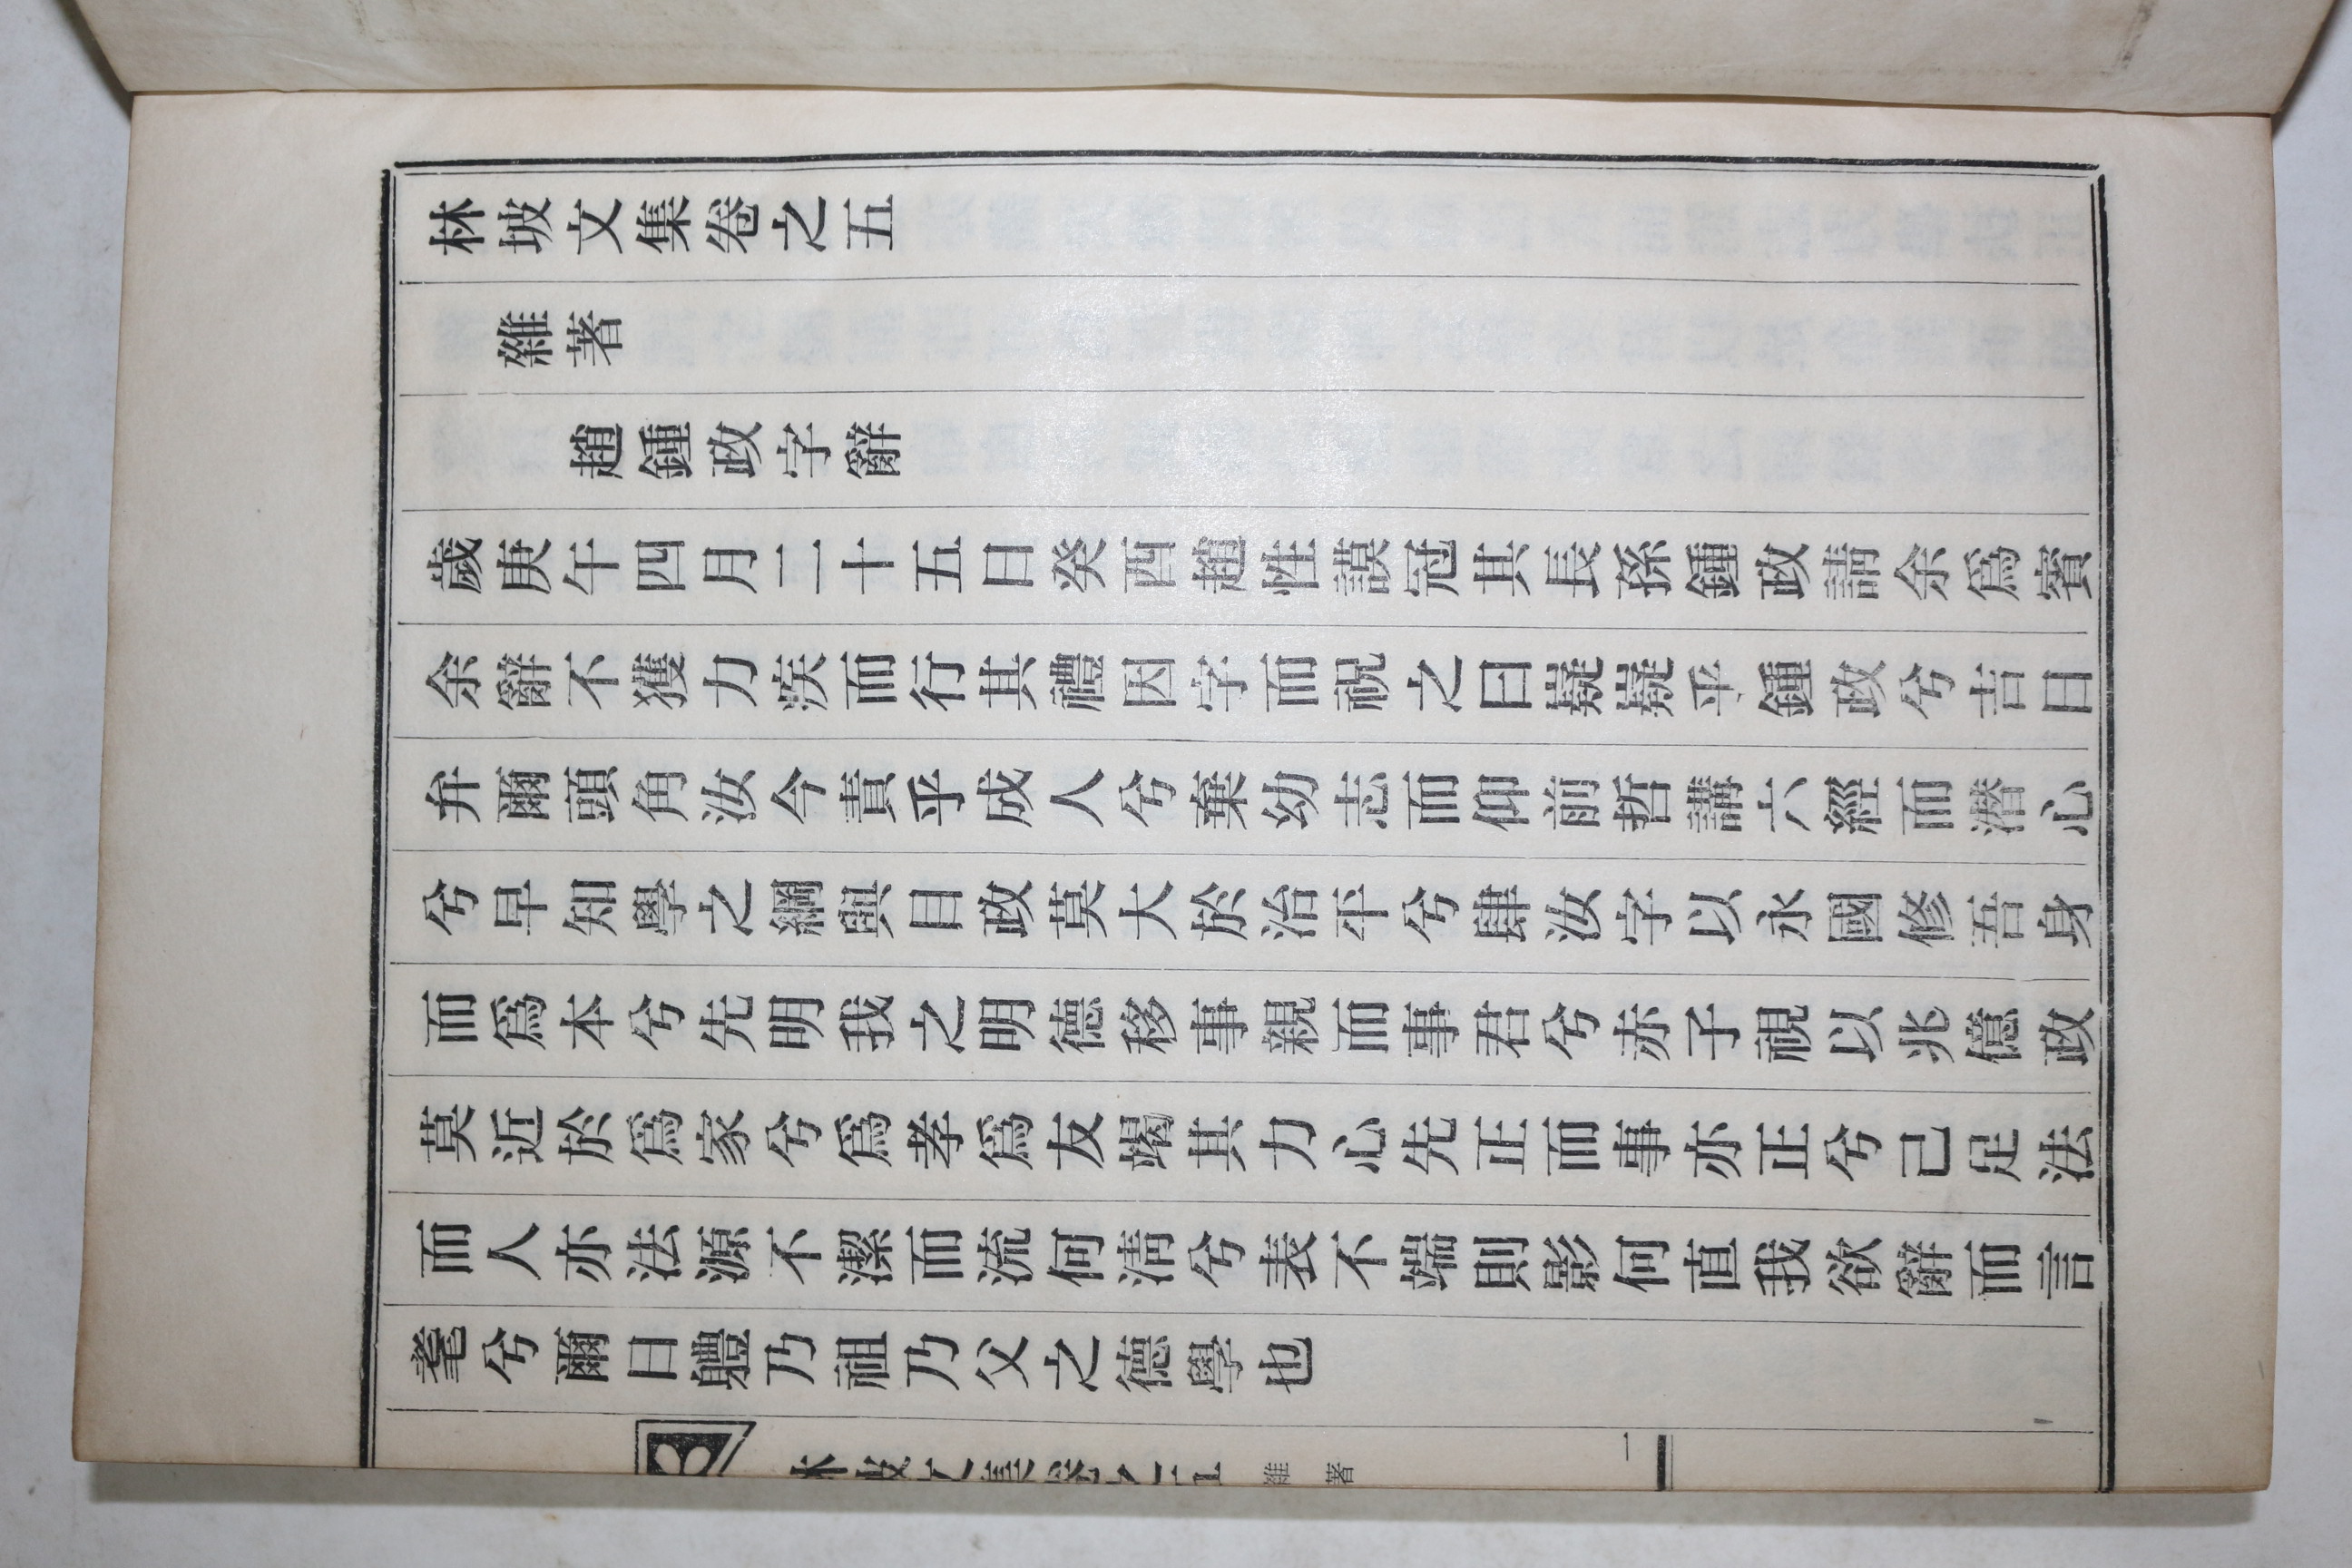 林坡文集卷之五
雜著
趙鍾政字辭
歲庚午四月二十五日癸酉趙性謨冠其長孫鍾政請余爲賓
余辭不獲力疾而行其禮因字而祝之曰嶷嶷乎鍾政兮吉日
弁爾頭角汝今責乎成人兮棄幼志而仰前哲講六經而潛心
兮早知學之綱與目政莫大於治平兮肆汝字以永國修吾身
而爲本兮先明我之明德移事親而事君兮赤子視以兆億政
莫近於爲家兮爲孝爲友竭其力心先正而事亦正兮己足法
而人亦法源不潔而流何淸兮表不端則影何直我欲辭而言
耄兮爾日軆乃祖乃父之德學也
林坡文集卷之五 雜著 一